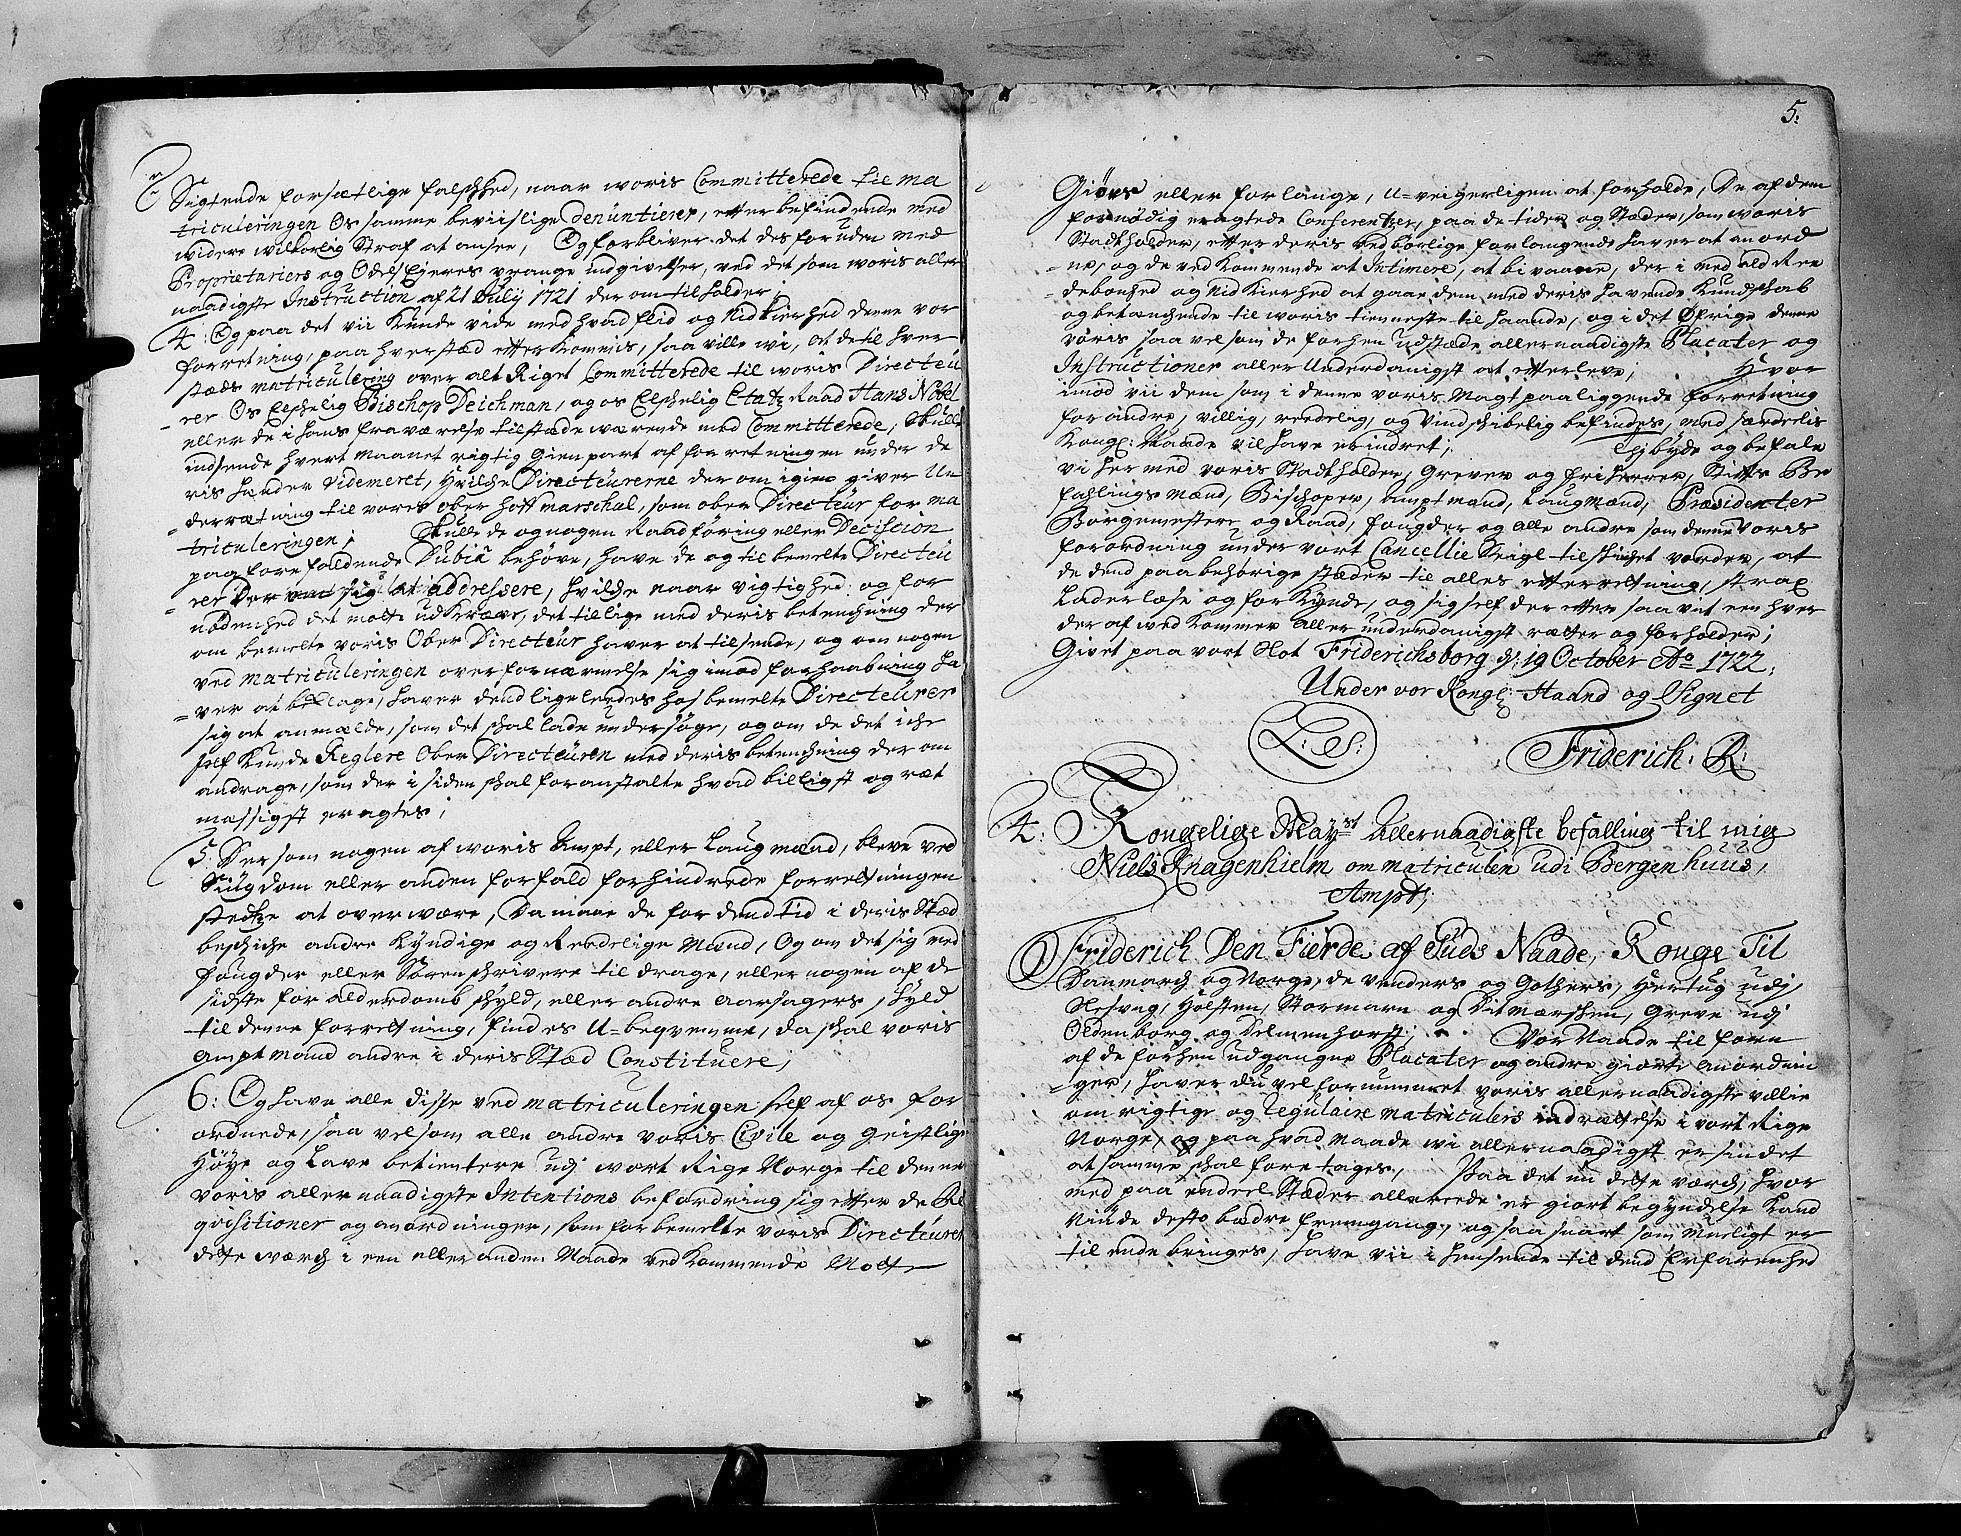 Sigtende forsætlige falschhed, naar woris Committerede til ma
triculeringen Os samme beviislige denuntierer, efter befindende med
widere wilkorlig Straf at ansee, Og forbliver det desforuden med
Proprietariers og Odels Ejeres vrange indgivelser, ved det som woris aller
naadigste Instruction af 21 July 1721 der om tilholder;
4: Og paa det vii kunde vide med hvad flid og Nidkierhed denne vor
forretning, paa hverstæd efterkommis, saa ville wi, at de til hver
stæds matriculering over alt Riget Committerede til woris Directeu
rer Os Elschelig Bischop Deichman, og os Elschelig Etatz Raad Hans Nobel
eller de i hans fraværelse tilstæde wærende med Committerede, skulle
indsende hvert Maanet rigtig Gienpart af forretningen under de
ris hænder Videmeret, hvilche Directeurerne der om igien giver Un
derrætning til vores ober hoff marschal, som ober Directeur for ma
triculeringen; Skulle de og nogen Raadføring eller Deciscion
paa forefaldende Dubia behøve, have de og til bemelte Directeu
rer der sig at addressere, hvilche naar vigtighed og for
nødenhed det motte udkræve, det tillige med deris betenchning der
om bemelte voris Ober Directeur haver at tilsende, og om nogen
ved matriculeringen over fornærmelse sig imod forhaabning ha
ver at beklage, haver dend ligeleedes hos bemelte Directeurer
sig at anmælde, som det schal lade undersøge, og om de det iche
self kunde Reglere Ober Directeuren med deris betenchning der om
andrage, som der i siden schal foranstalte hvad billigst og ræt
mæssigst eragtes;
5. Der som nogen af woris Ampt, eller Laugmænd, bleve ved
Siugdom eller anden forfald forhindrede forretningen
stedtze at overwære, Da maae de for dend tid i deris Stæd
beschiche andre kyndige og Reedelige Mænd, Og om det sig med
fougder eller Sorenschrivere til drage, eller nogen af de
sidste for alderdomb schyld, eller andre aarsagers schyld
til denne forretning, findes U-beqvemme, da schal voris
Amptmand andre i deris Stæd Constituere;
6: Og have alle disse ved matriculeringen self af os for
ordnede, saa velsom alle andre voris Civile og Geistlige
Høye og Lave betientere udj wort Rige Norge til denne
voris allernaadigste Intentions befordring sig efter de Re
qvisitioner og anordninger, som forbemelte voris Directeurer
dette wærch i een eller anden Maade ved kommende Motte
5.
Giøres eller forlange, U-veigerligen at forholde, De af dem
fornødig eragtede Conferentzer, paa de tider og Stæder, som woris
Stadtholder, efter deris ved børlige forlangende haver at anord
ne, og de ved kommende at Intimere, at bi vaane, der i med ald Ree
debonhed og Nidkierhed at gaae dem med deris havende Kundschab
og betænchende til woris tienneste til haande, og i det Øfrige denne
voris saa velsom de forhen udstæde allernaadigste Placater og
Instructioner aller Underdanigst at efterleve; Hvor
imod vii dem som i denne voris Magt paaliggende forretning
for andre, villig, reedelig, og Vindschibelig befindes, med særdelis
Kongl: Naade vil have erindret; Thj byde og befale
vi her med voris Stadtholder, Grever og friherrer, Stifts Be
fahlings mænd, Bischoper, amptmænd, Laugmænd, Præsidenter
Borgemestere og Raad, fougder og alle andre som denne Voris
forordning under vort Cancellie Seigl tilschichet vorder, at
de dend paa behørige stæder til alles efterretning, strax
Lader læse og forkynde, og sig self der efter saa vit een hver
der af wedkommer aller underdanigst rætter og forholder;
Givet paa vort Slot Friderichsborg d: 19 October Ao 1722.
Under vor Kongl: Haand og Signet
L: S:
Friderich: R:
4: Kongelige Mayst Allernaadigste befalling til mig
Niels Knagenhielm om matriculen udi Bergenhuus,
Ampt;
Friderich Den Fierde af Guds Naade, Konge Til
Danmarch og Norge, de Venders og Gothers, Hertug udj
Slesvig, Holsten, Stormarn og Ditmærschen, Greve udj
Oldenborg og Delmenhorst; Vor Naade til forn
af de forhen udgangne Placater og andre giorte anordnin
ger, haver du vel fornummet voris allernaadigste villie
om rigtige og Regulaire matriculers indrættelse i vort Rige
Norge, og paa hvad Maade wi allernaadigst er sindet
at samme schal foretages, Paa det nu dette værch, hvor
med paa endeel Stæder allereede er giort begyndelse kand
Niude desto bædre fremgang, og saa snart som Mueligt er
til ende bringes, have vii i henseende til dend Erfarenhed